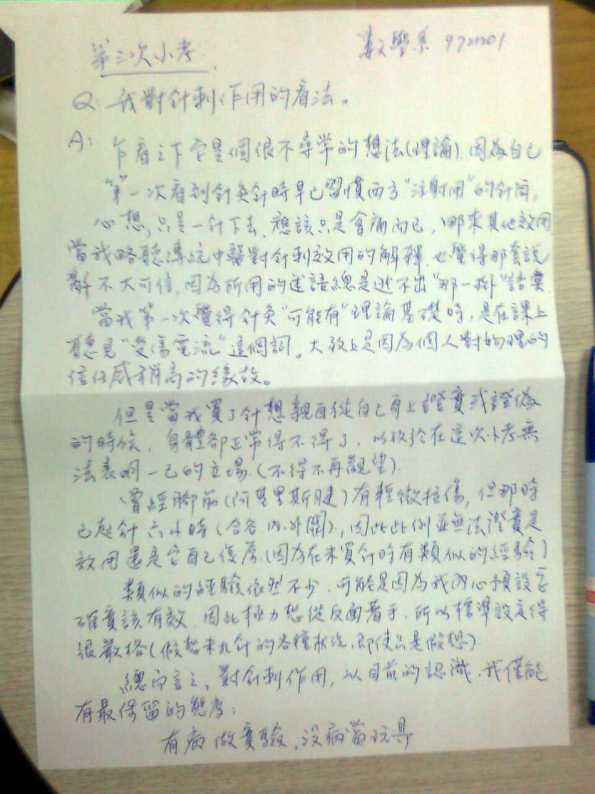 第三次小考 數學系 972201
Q: 我對針刺作用的看法。
A: 乍看之下它是個很不尋常的想法(理論),因為自己
第一次看到針灸針時早已習慣西方"注射用"的針筒,
心想,只是一針下去,應該只是會痛而已,哪來其他效用
當我略聽傳統中醫對針刺效用的解釋,也覺得那套說
辭不大可信,因為所用的述語總是逃不出"那一掛"語彙
當我第一次覺得針灸"可能有"理論基礎時,是在課上
聽見"受傷電流"這個詞。大致上是因為個人對物理的
信任感稍高的緣故。
但是當我買了針想親自從自己身上證實或證偽
的時候,身體卻正常得不得了,以致於在這次小考無
法表明一己的立場(不得不再觀望)。
曾經腳筋(阿基里斯腱)有輕微拉傷,但那時
已起針六小時(合谷、內、外關),因此此例並無法證實是
效用還是它自己復原(因為在未買針時有類似的經驗)
類似的經驗依然不少,可能是因為我內心預設它
確實該有效,因此極力想從反面著手,所以標準設定得
很嚴格(假想未扎針的各種狀況,即使只是假想)
總而言之,對針刺作用,以目前的認識,我僅能
有最保留的態度:
有病做實驗,沒病當玩具